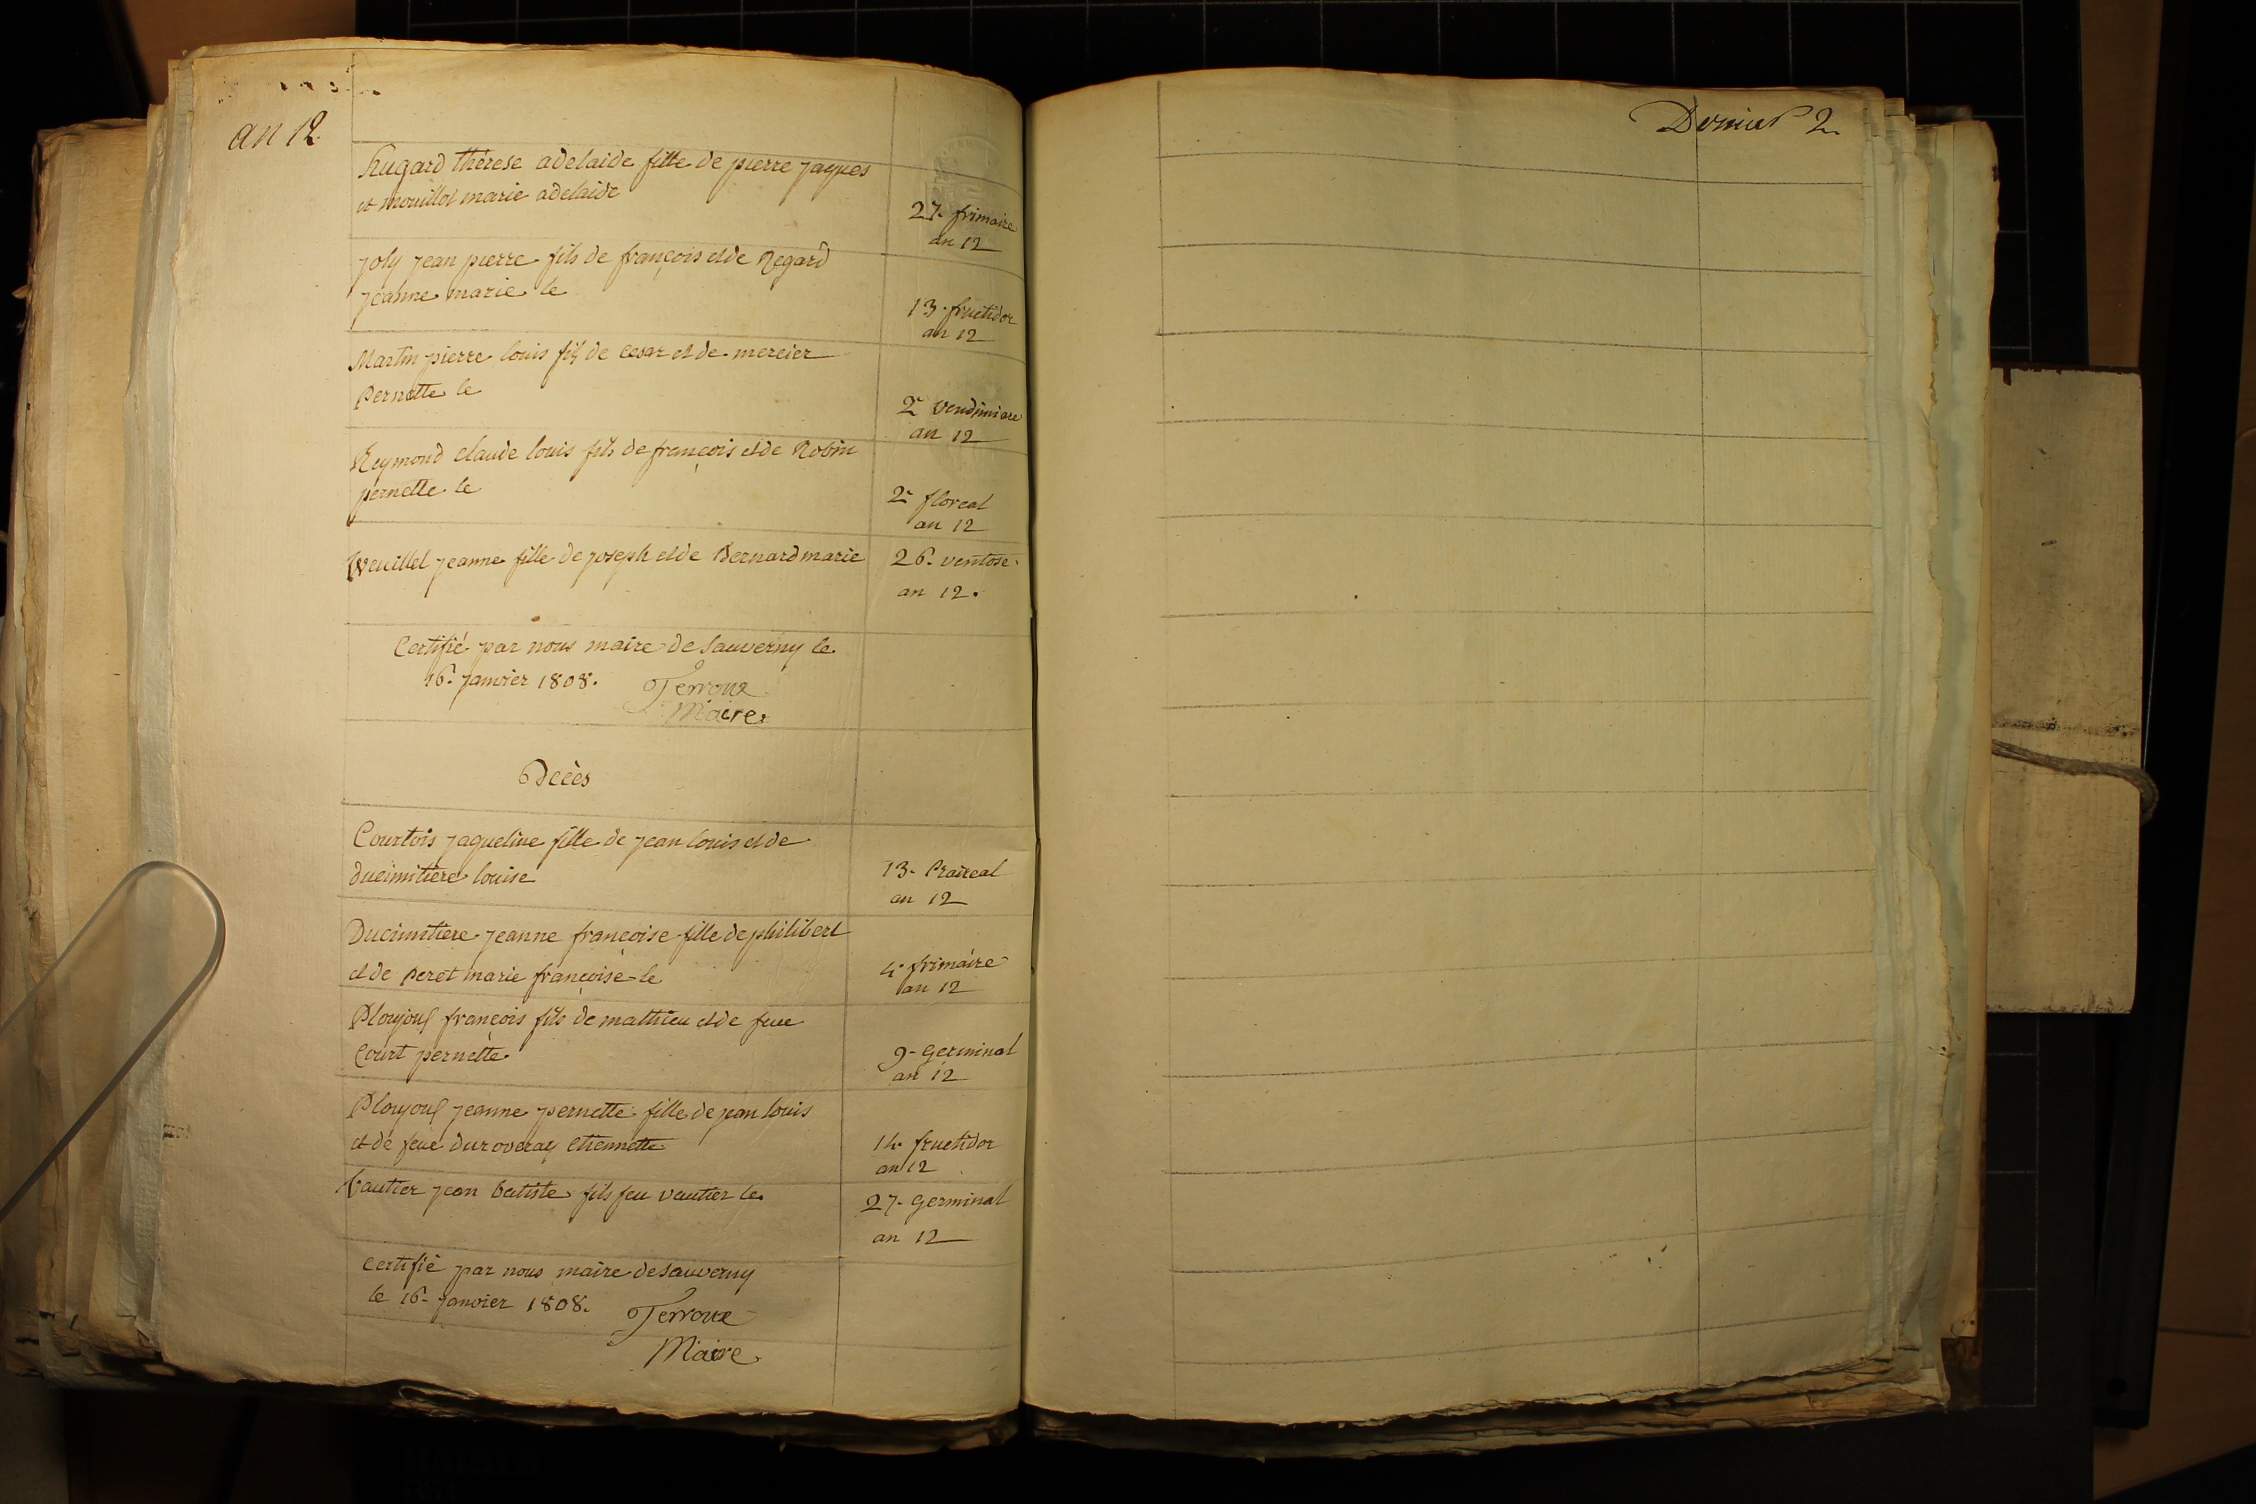 an 12
hugard thérese adelaide fille de pierre jaques
et mouillot marie adelaide
27. frimaire
an 12
joly jean pierre fils de françois et de Regard
jeanne marie le
13. fructidor
an 12
Martin pierre louis fils de cesar et de mercier
Pernette le
2e vendimiare
an 12
Reymond claude louis fils de françois et de Robin
pernette le
2e floreal
an 12
Vveuillet jeanne fille de joseph et de Bernard marie
26. ventose
an 12.
Certifié par nous maire de Sauverny le
16. janvier 1808.
Terroux
Maire
Décès
Courtois jaqueline fille de jean louis et de
ducimitiere louise
13. Praireal
an 12
Ducimitiere jeanne françoise fille de philibert
et de Peret marie françoise le
4e frimaire
an 12
Ploujoux françois fils de mathieu et de feue
Court pernette
9. Germinal
an 12
Ploujoux jeanne pernette fille de jean louis
et de feue duroveray etiennette
14. fructidor
an 12
Vautier jean batiste fils feu vautier le
27. Germinal
an 12
Certifié par nous maire de Sauverny
le 16. janvier 1808.
Terroux
Maire
Dernier 2